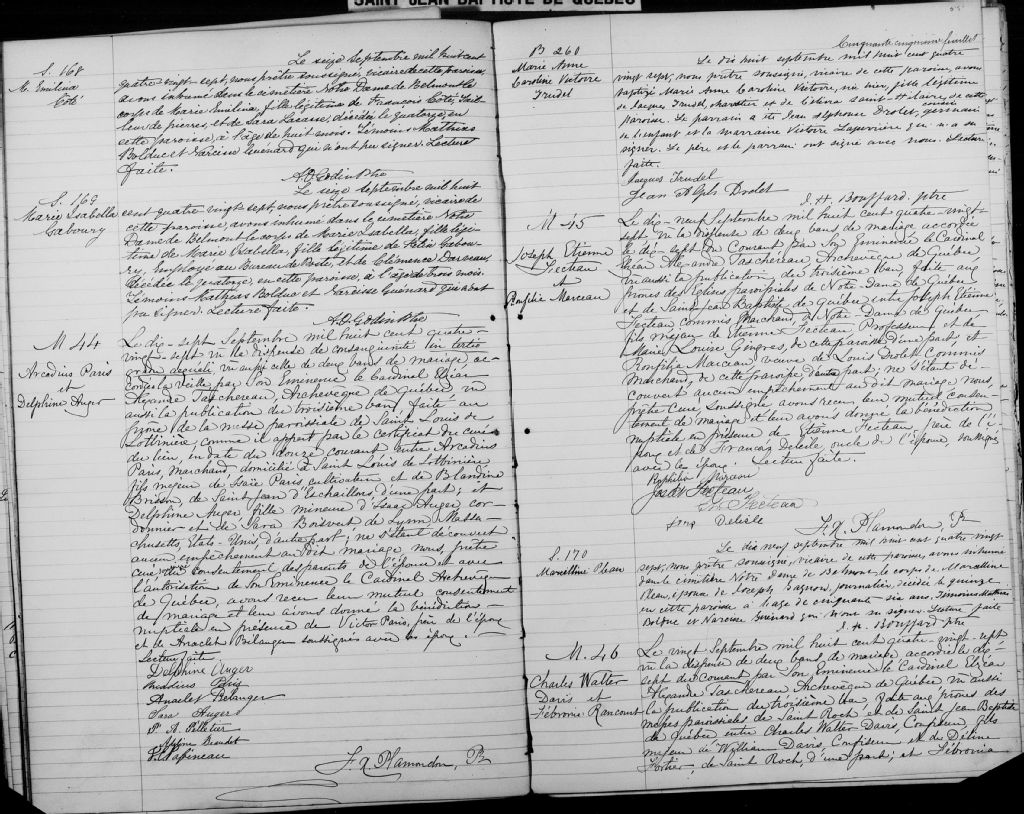 SAINT JEAN BAPTISTE DE QUEBEC
S. 168
M. Emilina
Coté
Le seize Septembre mil huit cent
quatre-vingt-sept, nous prêtre soussigné, vicaire de cette paroisse,
avons inhumé dans le cimetière Notre Dame de Belmont le
corps de Marie Emilina, fille légitime de François Coté, tail-
leur de pierres, et de Sara Lecasse, décédée le quatorze, en
cette paroisse, à l'âge de huit mois. Témoins Mathias
Bolduc et Narcisse Guénard qui n'ont pu signer. Lecture
faite.
A. O. Godin Ptre
S. 169
Marie Isabella
Gaboury
Le seize Septembre mil huit
cent quatre vingt sept, nous prêtre soussigné, vicaire de
cette paroisse, avons inhumé dans le cimetière Notre
Dame de Belmont le corps de Marie Isabella, fille légi-
time de Marie Isabella, fille légitime de Félix Gabou-
ry, employé au Bureau de Poste, et de Clémence Darveau,
décédée le quatorze, en cette paroisse, à l'âge de trois mois.
Témoins Mathias Bolduc et Narcisse Guénard qui n'ont
pu signer. Lecture faite.
A. O. Godin Ptre
M 44
Arcadius Paris
et
Delphine Auger
Le dix-sept Septembre mil huit cent quatre-
vingt-sept vu la dispense de consanguinité in tertio
gradu aequali, vu aussi celle de deux bans de mariage ac-
cordée la veille par Son Eminence le Cardinal Elzéar
Alexandre Taschereau, Archevêque de Québec, vu
aussi la publication du troisième ban, faite au
prône de la messe paroissiale de Saint Louis de
Lotbinière, comme il appert par le certificat du curé
du lieu, en date du douze courant entre Arcadius
Paris, Marchand, domicilié à Saint Louis de Lotbinière
fils majeur de Isaïe Paris, cultivateur et de Blandine
Brisson, de Saint Jean d'Eschaillons, d'une part; et
Delphine Auger fille mineure d'Isaac Auger cor-
donnier et de Sara Boisvert de Lynn Massa-
chusetts, Etats-Unis, d'autre part; ne s'étant découvert
aucun empêchement au dit mariage, nous, prêtre
curé, du consentement des parents de l'épouse et avec
l'autorisation de Son Eminence le Cardinal Archevêque
de Québec, avons reçu leur mutuel consentement
de mariage et leur avons donné la bénédiction
nuptiale en présence de Victor Paris, frère de l'époux
et de Anaclet Bélanger soussignés avec les époux.
Lecture faite
Delphine Auger
Arcadius Paris
Anaclet Belanger
Sara Auger
P. A. Pelletier
Beaudet
Papineau
F. X. Plamondon, Ptre
Cinquante cinquième feuillet
55
B 260
Marie Anne
Caroline Victoire
Trudel
Le dix huit septembre mil huit cent quatre
vingt sept, nous prêtre soussigné, vicaire de cette paroisse, avons
baptisé Marie Anne Caroline Victoire, née hier, fille légitime
de Jacques Trudel, charretier et de Célina Saint-Hilaire, de cette
paroisse. Le parrain a été Jean Alphonse Drolet, cousin germain
de l'enfant et la marraine Victoire Laperrière qui n'a su
signer. Le père et le parrain ont signé avec nous. Lecture
faite.
Jacques Trudel
Jean Alphs Drolet
J. H. Bouffard ptre
M 45
Joseph Etienne
Fecteau
et
Rosilie Marceau
Le dix-neuf Septembre mil huit cent quatre-vingt-
sept vu la dispense de deux bans de mariage accordée
le dix-sept du courant par Son Eminence le Cardinal
Elzéar Alexandre Taschereau, Archevêque de Québec
vu aussi la publication du troisième ban, faite aux
prônes des Eglises paroissiales de Notre-Dame de Québec
et de Saint Jean Baptiste de Québec entre Joseph Etienne
Fecteau commis Marchand, de Notre-Dame de Québec
fils majeur de Etienne Fecteau, Professeur, et de
Marie Louise Gingras, de cette paroisse d'une part; et
Rosilie Marceau veuve de Louis Drolet Commis
Marchand, de cette paroisse, d'autre part; ne s'étant dé-
couvert aucun empêchement au dit mariage, Nous,
prêtre Curé, soussigné avons reçu leur mutuel consen-
tement de mariage et leur avons donné la bénédiction
nuptiale en présence de Etienne Fecteau, père de l'é-
poux et de François Delisle, oncle de l'épouse, soussignés
avec les époux. Lecture faite.
Josh E Fecteau
Et. Fecteau
Frns Delisle
F. X. Plamondon, Ptr
S. 170
Marcelline Pleau
Le dix neuf septembre mil huit cent quatre vingt
sept, nous prêtre soussigné, vicaire de cette paroisse, avons inhumé
dans le cimetière Notre Dame de Belmont, le corps de Marcelline
Pleau, épouse de Joseph Gagnon, journalier, décédée le quinze
en cette paroisse à l'âge de cinquante six ans. Témoins Mathias
Bolduc et Narcisse Guénard qui n'ont su signer. Lecture faite
J. H. Bouffard ptre
M. 46
Charles Walter
Davis et
Fébronie Rancourt
Le vingt Septembre mil huit cent quatre-vingt-sept
vu la dispense de deux bans de mariage accordée le dix-
sept du courant par Son Eminence le Cardinal Elzéar
Alexandre Taschereau Archevêque de Québec vu aussi
la publication du troisième ban faite aux prônes des
messes paroissiales de Saint Roch et de Saint Jean Baptiste
de Québec entre Charles Walter Davis, Confiseur, fils
majeur de William Davis, Confiseur et de Déline
Fortier, de Saint Roch, d'une part; et Fébronie